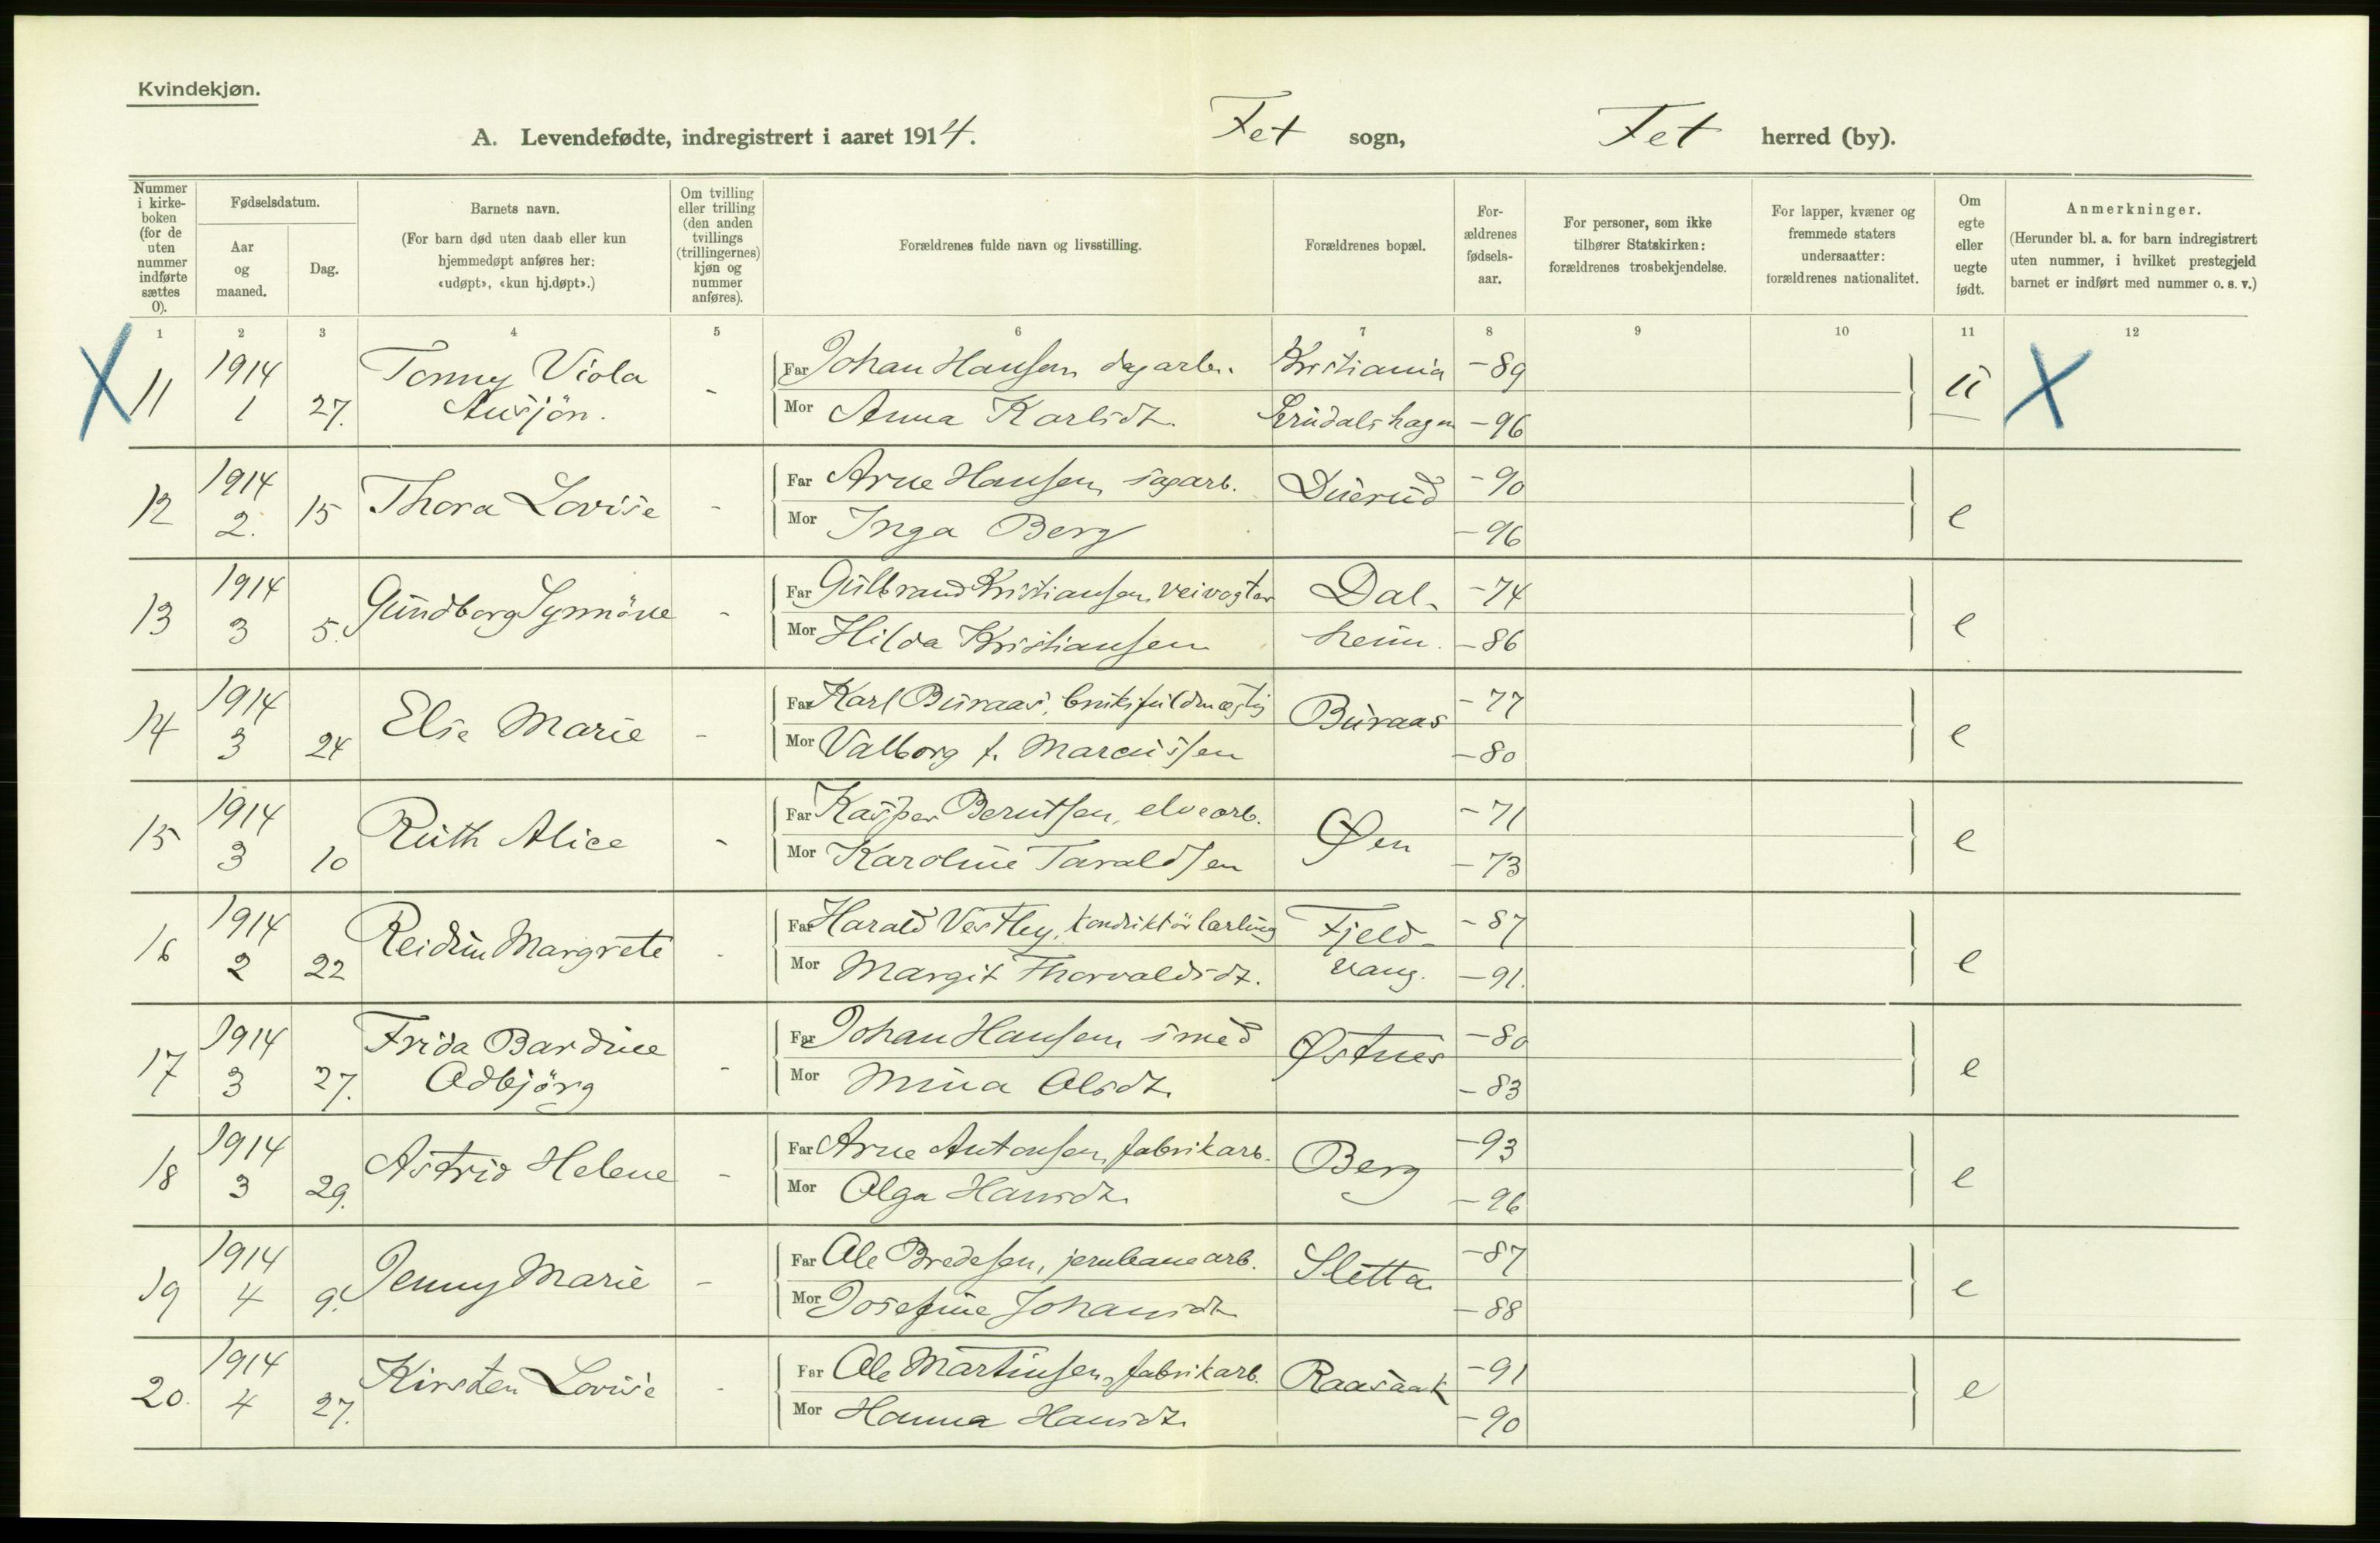 Kvindekjøn.
A. Levendefødte, indregistrert i aaret 1914. Fet sogn, Fet herred (by).
Nummer i kirke-boken (for de uten nummer indførte sættes 0).
Fødselsdatum.
Aar og maaned.
Dag.
Barnets navn.
(For barn død uten daab eller kun hjemmedøpt anføres her: «udøpt», «kun hj.døpt».)
Om tvilling eller trilling (den anden tvillings (trillingernes) kjøn og nummer anføres).
Forældrenes fulde navn og livsstilling.
Forældrenes bopæl.
For-ældrenes fødsels-aar.
For personer, som ikke tilhører Statskirken: forældrenes trosbekjendelse.
For lapper, kvæner og fremmede staters undersaatter: forældrenes nationalitet.
Om egte eller uegte født.
Anmerkninger.
(Herunder bl. a. for barn indregistrert uten nummer, i hvilket prestegjeld barnet er indført med nummer o. s. v.)
1 2 3 4 5 6 7 8 9 10 11 12
X 11 1914 1 27. Tonny Viola - Far Johan Hansen dagarb. Kristiania -89 u X
Mor Anna Karlsdt. -96
12 1914 2. 15 Thora Lovise - Far Arne Hansen, sagarb. Duerud -90 e
Mor Inga Berg -96
13 1914 3 5. Gundborg Synnöve - Far Gulbrand Kristiansen, veivogter Dal- -74 e
Mor Hilda Kristiansen heim. -86
14 1914 3 24 Else Marie - Far Karl Buraas, bruksfuldmægtig Buraas -77 e
Mor Valborg f. Marcussen -80
15 1914 3 10 Ruth Alice - Far Kasper Berntsen, elvearb. Øen -71 e
Mor Karoline Tavaldsen -73
16 1914 2 22 Reidun Margrete - Far Harald Vestley, konduktörlærling Fjeld- -87 e
Mor Margit Thorvaldsdt. vang. -91.
17 1914 3 27. Frida Bardine - Far Johan Hansen, smed Østnes -80 e
Odbjörg Mor Mina Olsdt. -83
18 1914 3 29. Astrid Helene - Far Arne Antonsen, fabrikarb. Berg -93 e
Mor Olga Hansdt. -96
19 1914 4 9. Jenny Marie - Far Ole Bredesen, jernbanearb. Sletta -87 e
Mor Josefine Johansdt -88
20. 1914 4 27. Kirsten Lovise - Far Ole Martinsen, fabrikarb. Raasaak -91 e
Mor Hanna Hansdt. -90